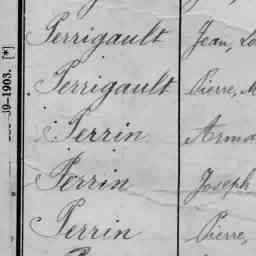 Perrigault Jean, Lo
Perrigault Pierre, M
Perrin Arma
Perrin Joseph
Perrin Pierre,
39-1903. [*]